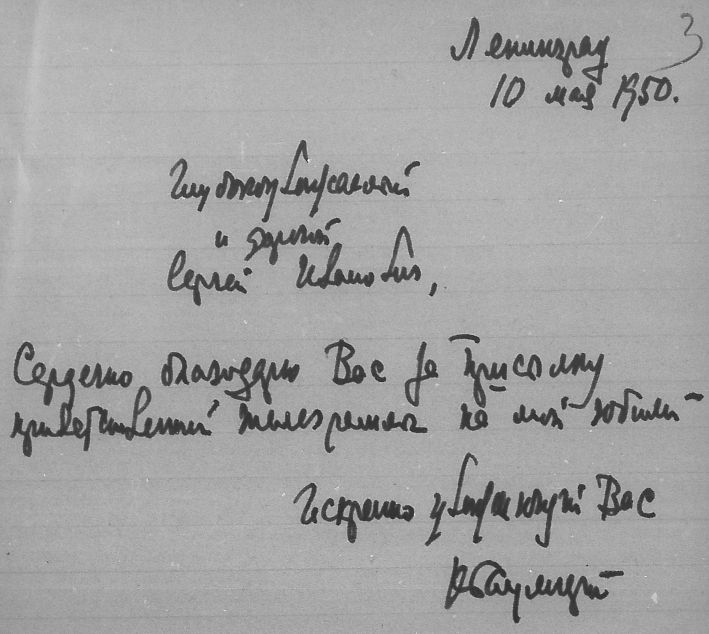 3
Ленинград
10 мая 1950.
Глубокоуважаемый
и дорогой
Сергей Иванович,
Сердечно благодарю Вас за присылку
приветственной телеграммы на мой юбилей
Искренно уважающий Вас